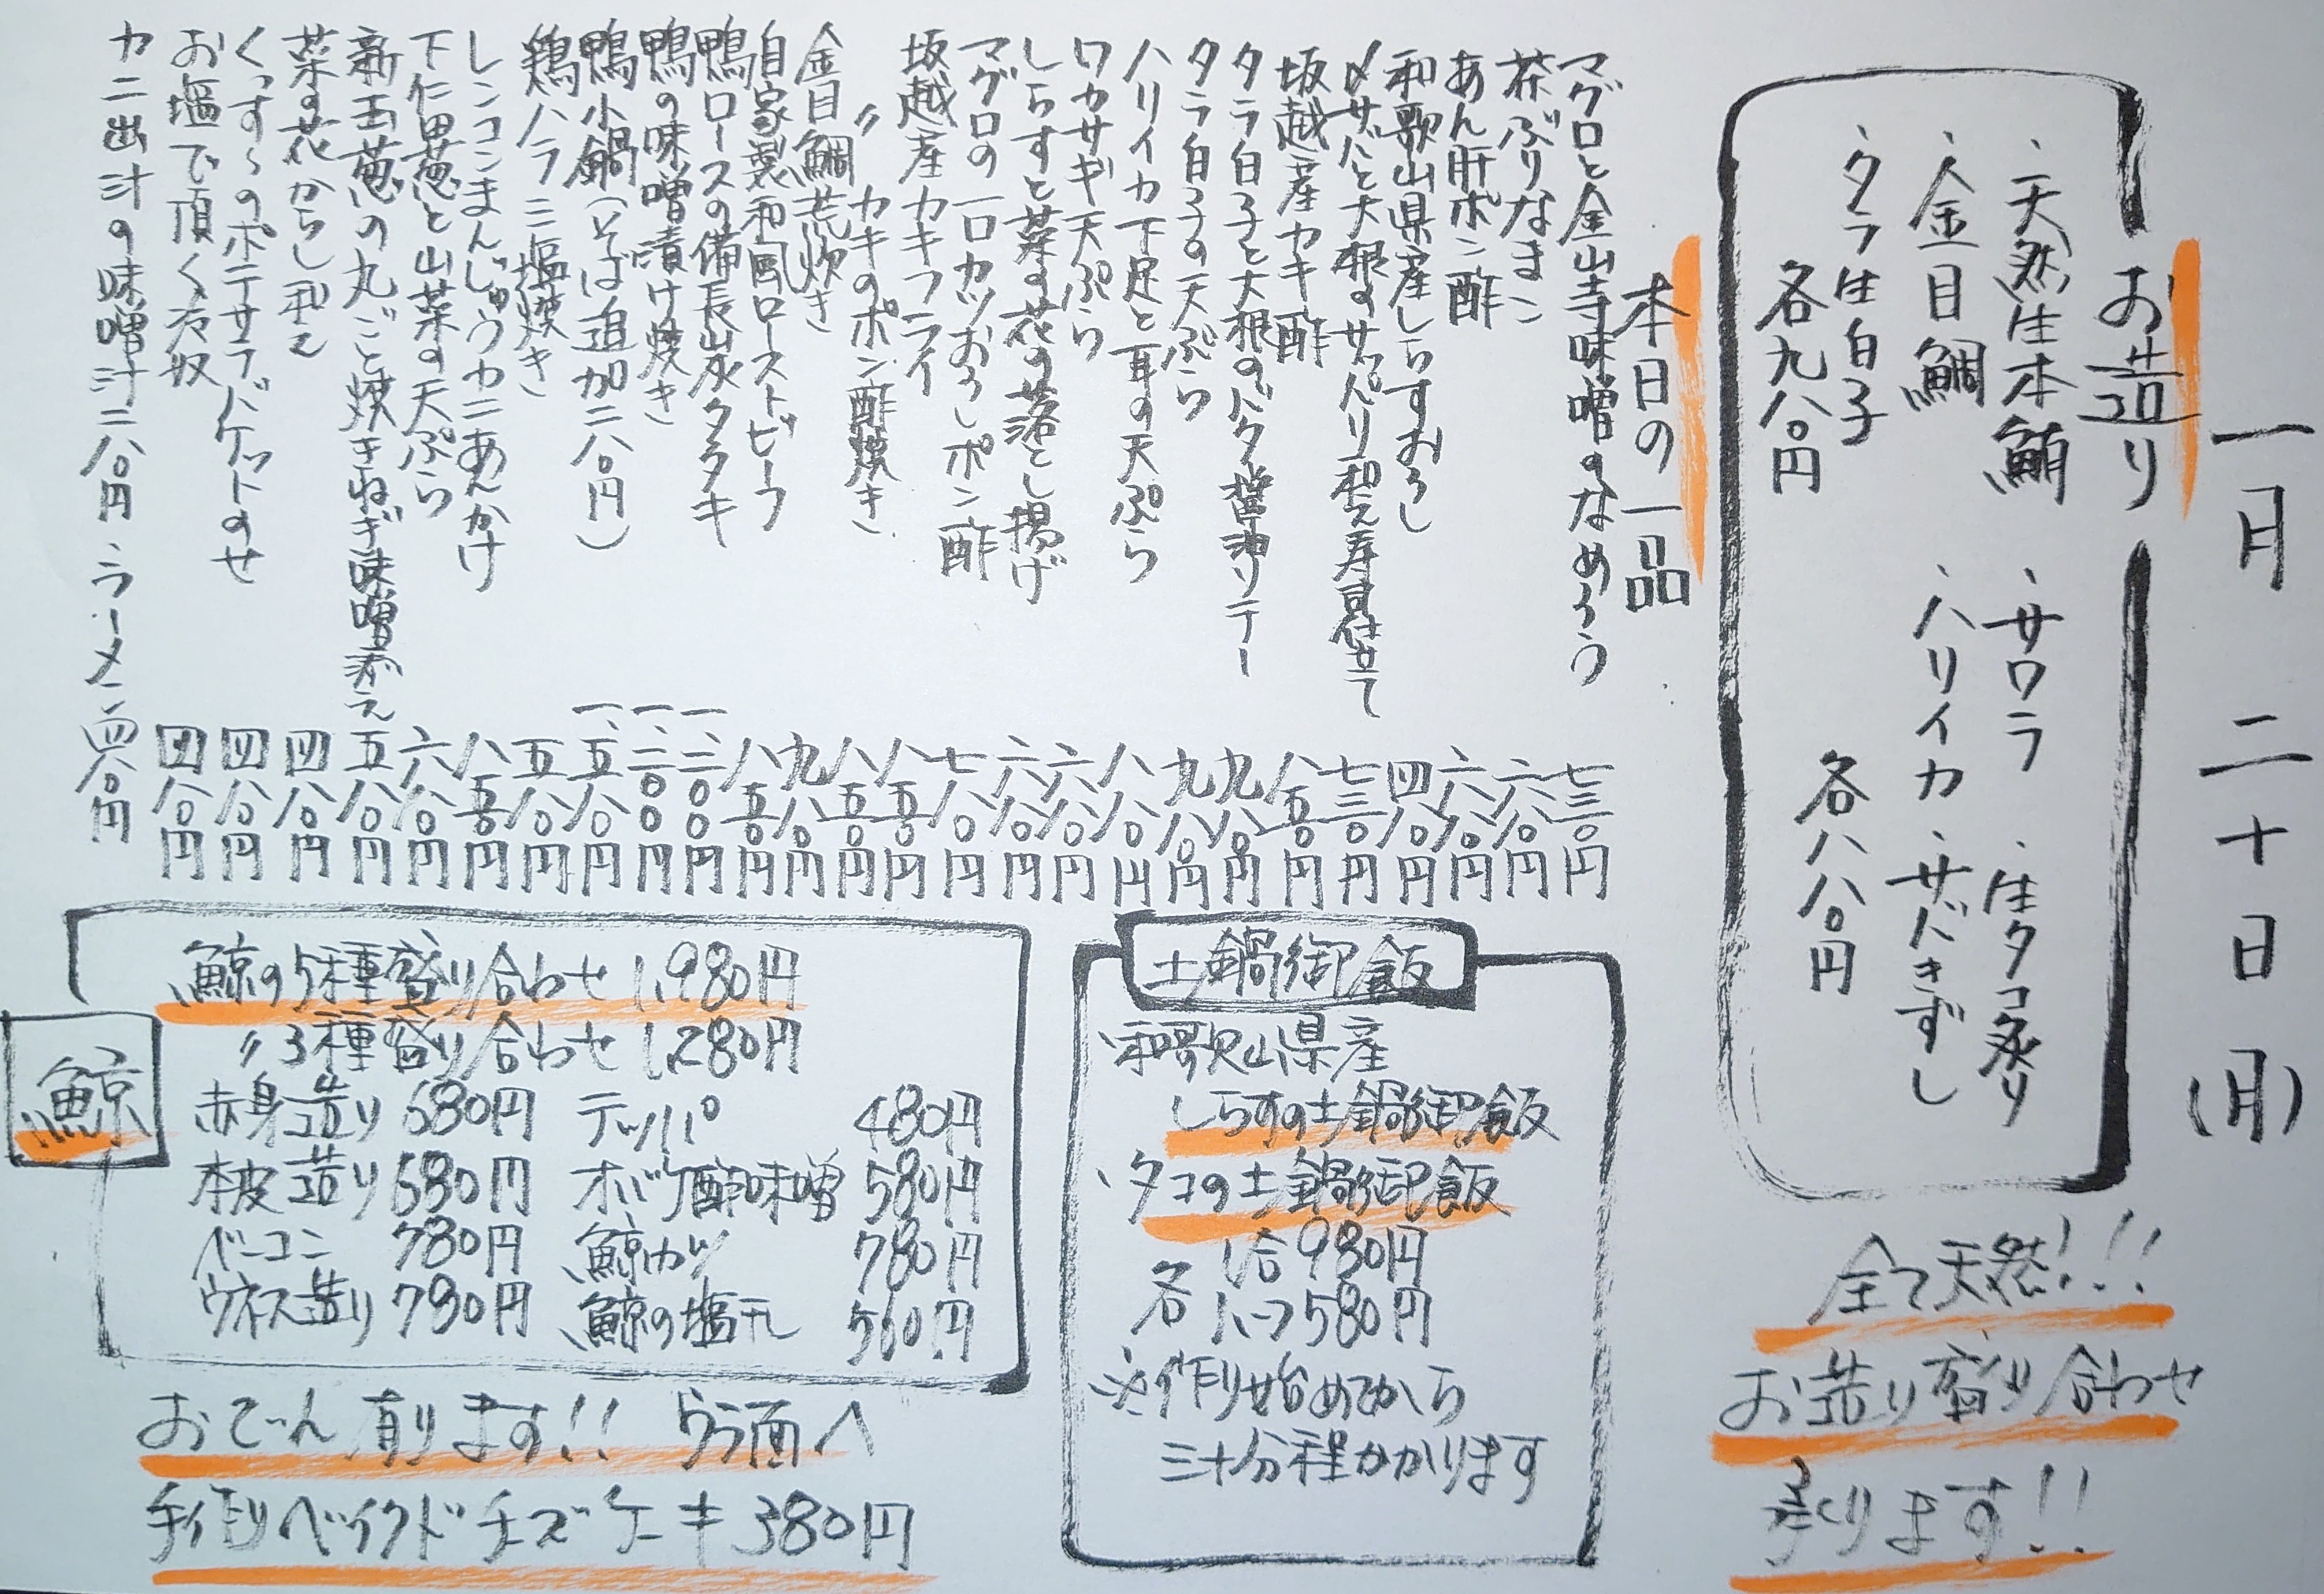 一月二十日(月)
お造り
・天然生本鮪
・サワラ
・生タコ炙り
・金目鯛
・ハリイカ
・サバきずし
・タラ生白子
各九八〇円
各八八〇円
全て天然!!!
お造り盛り合わせ
承ります!!
本日の一品
マグロと金山寺味噌のなめろう 七三〇円
茶ぶりなまこ 六八〇円
あん肝ポン酢 六八〇円
和歌山県産しらすおろし 四八〇円
〆サバと大根のサッパリ和え寿司仕立て 七三〇円
坂越産カキ酢 八五〇円
タラ白子と大根のバタ醤油ソテー 九八〇円
タラ白子の天ぷら 九八〇円
ハリイカ下足と耳の天ぷら 八八〇円
ワカサギ天ぷら 六八〇円
しらすと菜の花の落とし揚げ 六八〇円
マグロの一口カツおろしポン酢 七八〇円
坂越産カキフライ 八五〇円
〃 カキのポン酢焼き 八五〇円
金目鯛荒炊き 九八〇円
自家製和風ローストビーフ 八五〇円
鴨ロースの備長炭タタキ 一、二〇〇円
鴨の味噌漬け焼き 一、二〇〇円
鴨小鍋(そば追加二八〇円) 一、五八〇円
鶏ハラミ塩焼き 五八〇円
レンコンまんじゅうカニあんかけ 八五〇円
下仁田葱と山菜の天ぷら 六八〇円
新玉葱の丸ごと焼きねぎ味噌添え 五八〇円
菜の花からし和え 四八〇円
くっすーのポテサラバケットのせ 四八〇円
お塩で頂く冷奴 四八〇円
カニ出汁の味噌汁二八〇円・ラーメン四八〇円
土鍋御飯
・和歌山県産
しらすの土鍋御飯
・タコの土鍋御飯
各 1合 980円
ハーフ 580円
※作り始めてから
三十分程かかります
鯨
鯨の5種盛り合わせ 1,980円
〃 3種盛り合わせ 1,280円
赤身造り 680円 テッパ 480円
本皮造り 680円 オバケ酢味噌 580円
ベーコン 780円 鯨カツ 780円
ウネス造り 780円 鯨の塩干し 560円
おでん有ります!! ウラ面へ
手作りベイクドチーズケーキ 380円